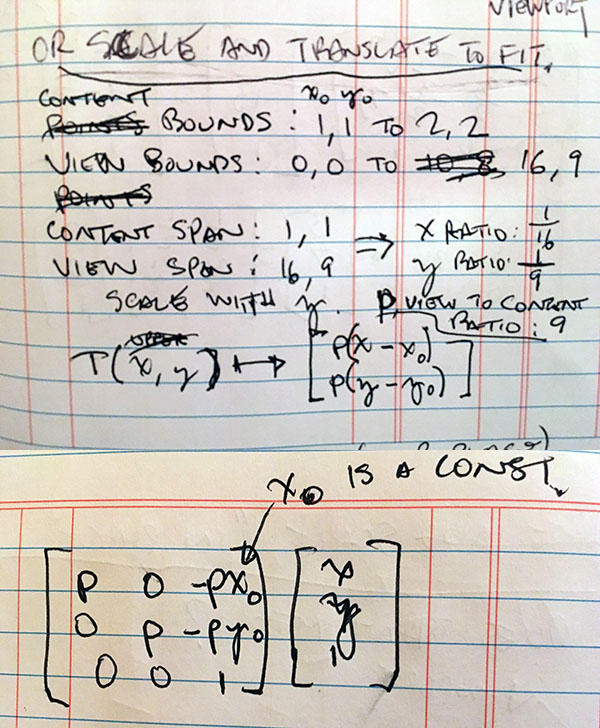 VIEWPORT
OR SCALE AND TRANSLATE TO FIT.
CONTENT x₀ y₀
BOUNDS : 1,1 TO 2,2
VIEW BOUNDS: 0,0 TO 16,9
CONTENT SPAN: 1, 1 ⇒ X RATIO: 1/16
VIEW SPAN: 16, 9 y RATIO: 1/9
SCALE WITH y. P, VIEW TO CONTENT
RATIO: 9
T(x, y) ↦ [p(x - x₀)
p(y - y₀)]
x₀ IS A CONST.
[P 0 -px₀] [x
0 P -py₀ y
0 0 1] 1]